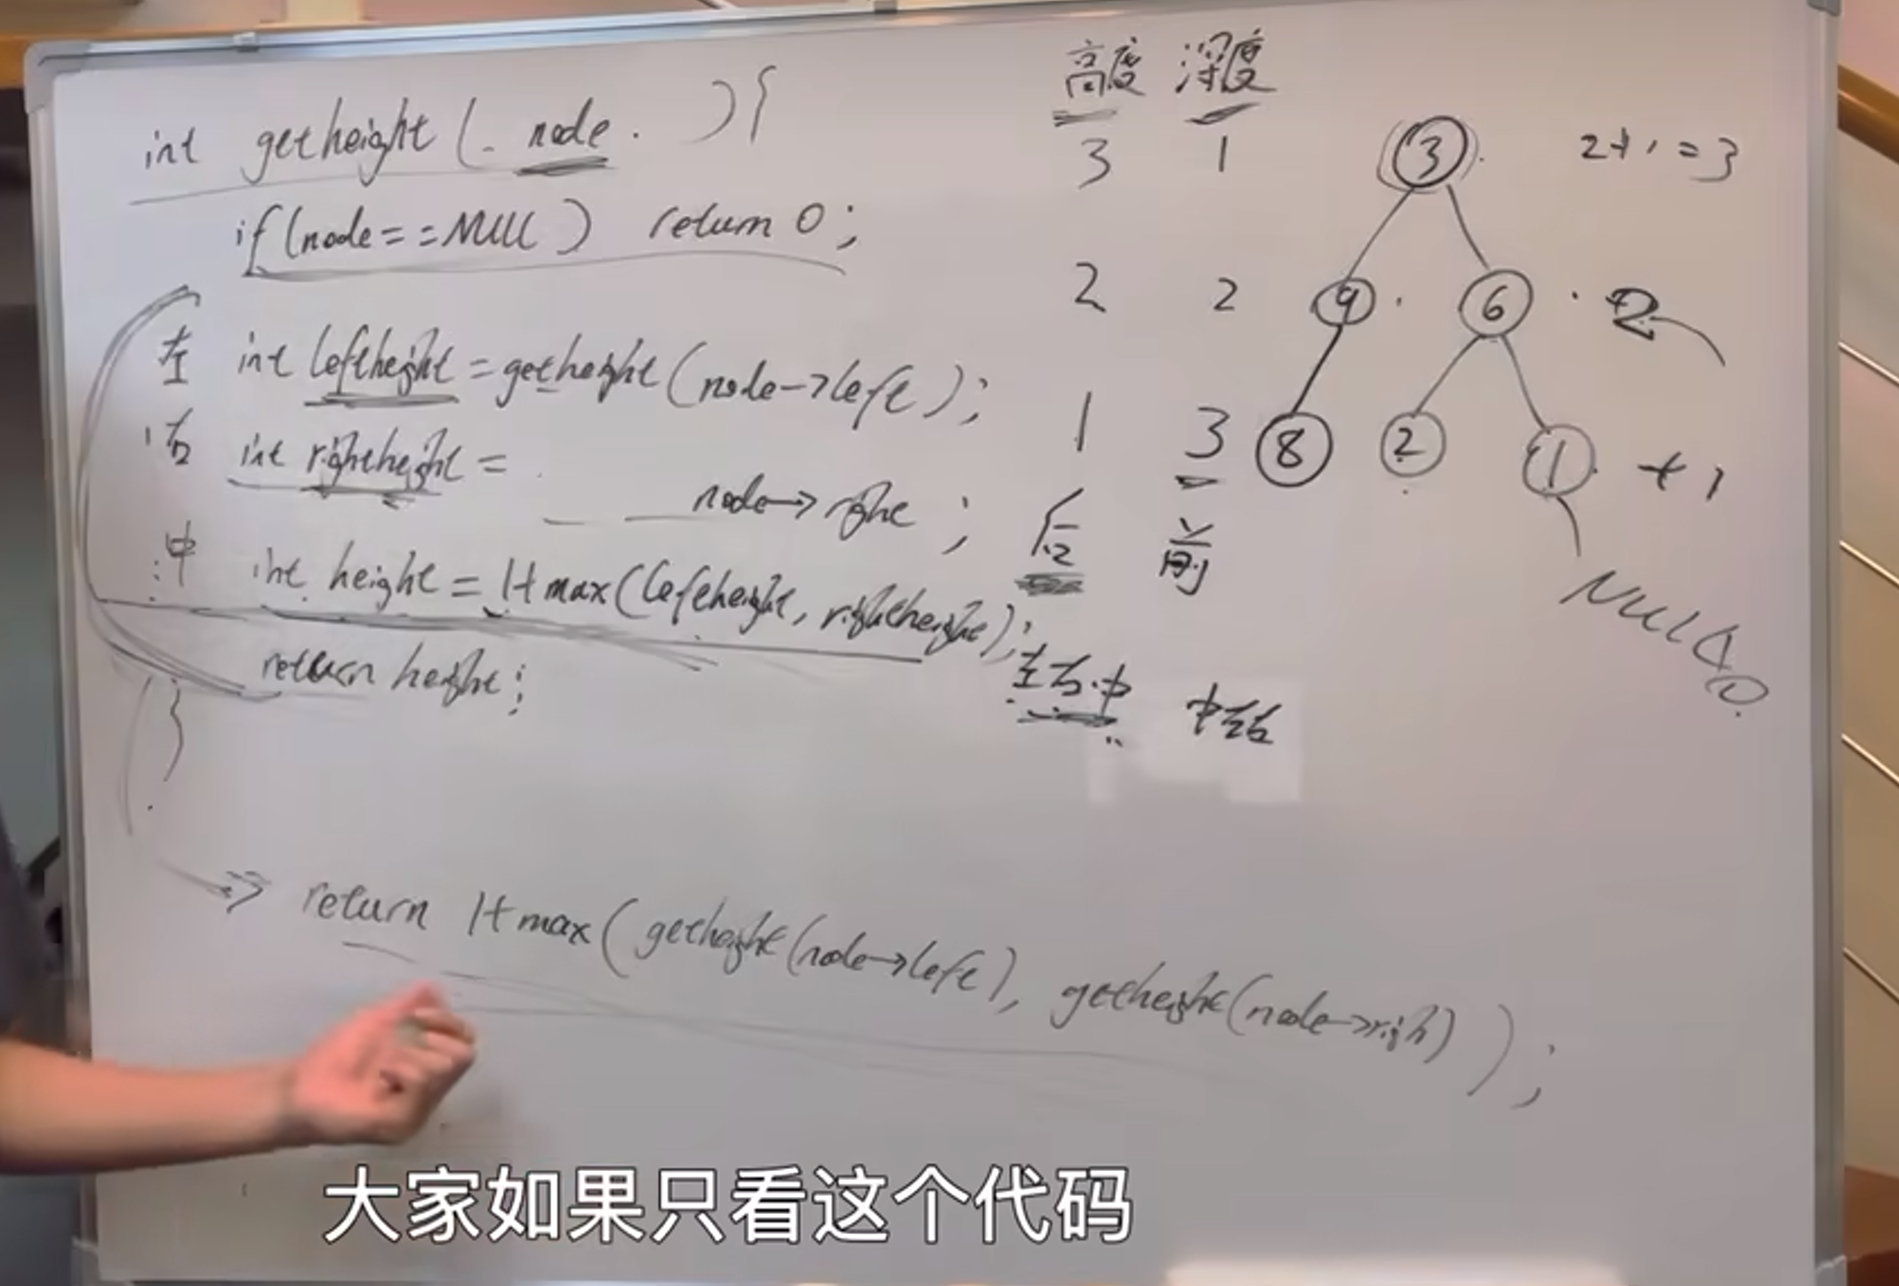 int getheight( node ){
if(node==NULL) return 0;
左 int leftheight=getheight(node->left);
右 int rightheight= node->right ;
中 int height=1+max(leftheight, rightheight);
return height;
}
return 1+max(getheight(node->left), getheight(node->righ) );
高度 深度
3 1
2 2
1 3
后 前
左右中 中左右
3 2+1=3
9 6 2
8 2 1 +1
NULL 0
大家如果只看这个代码